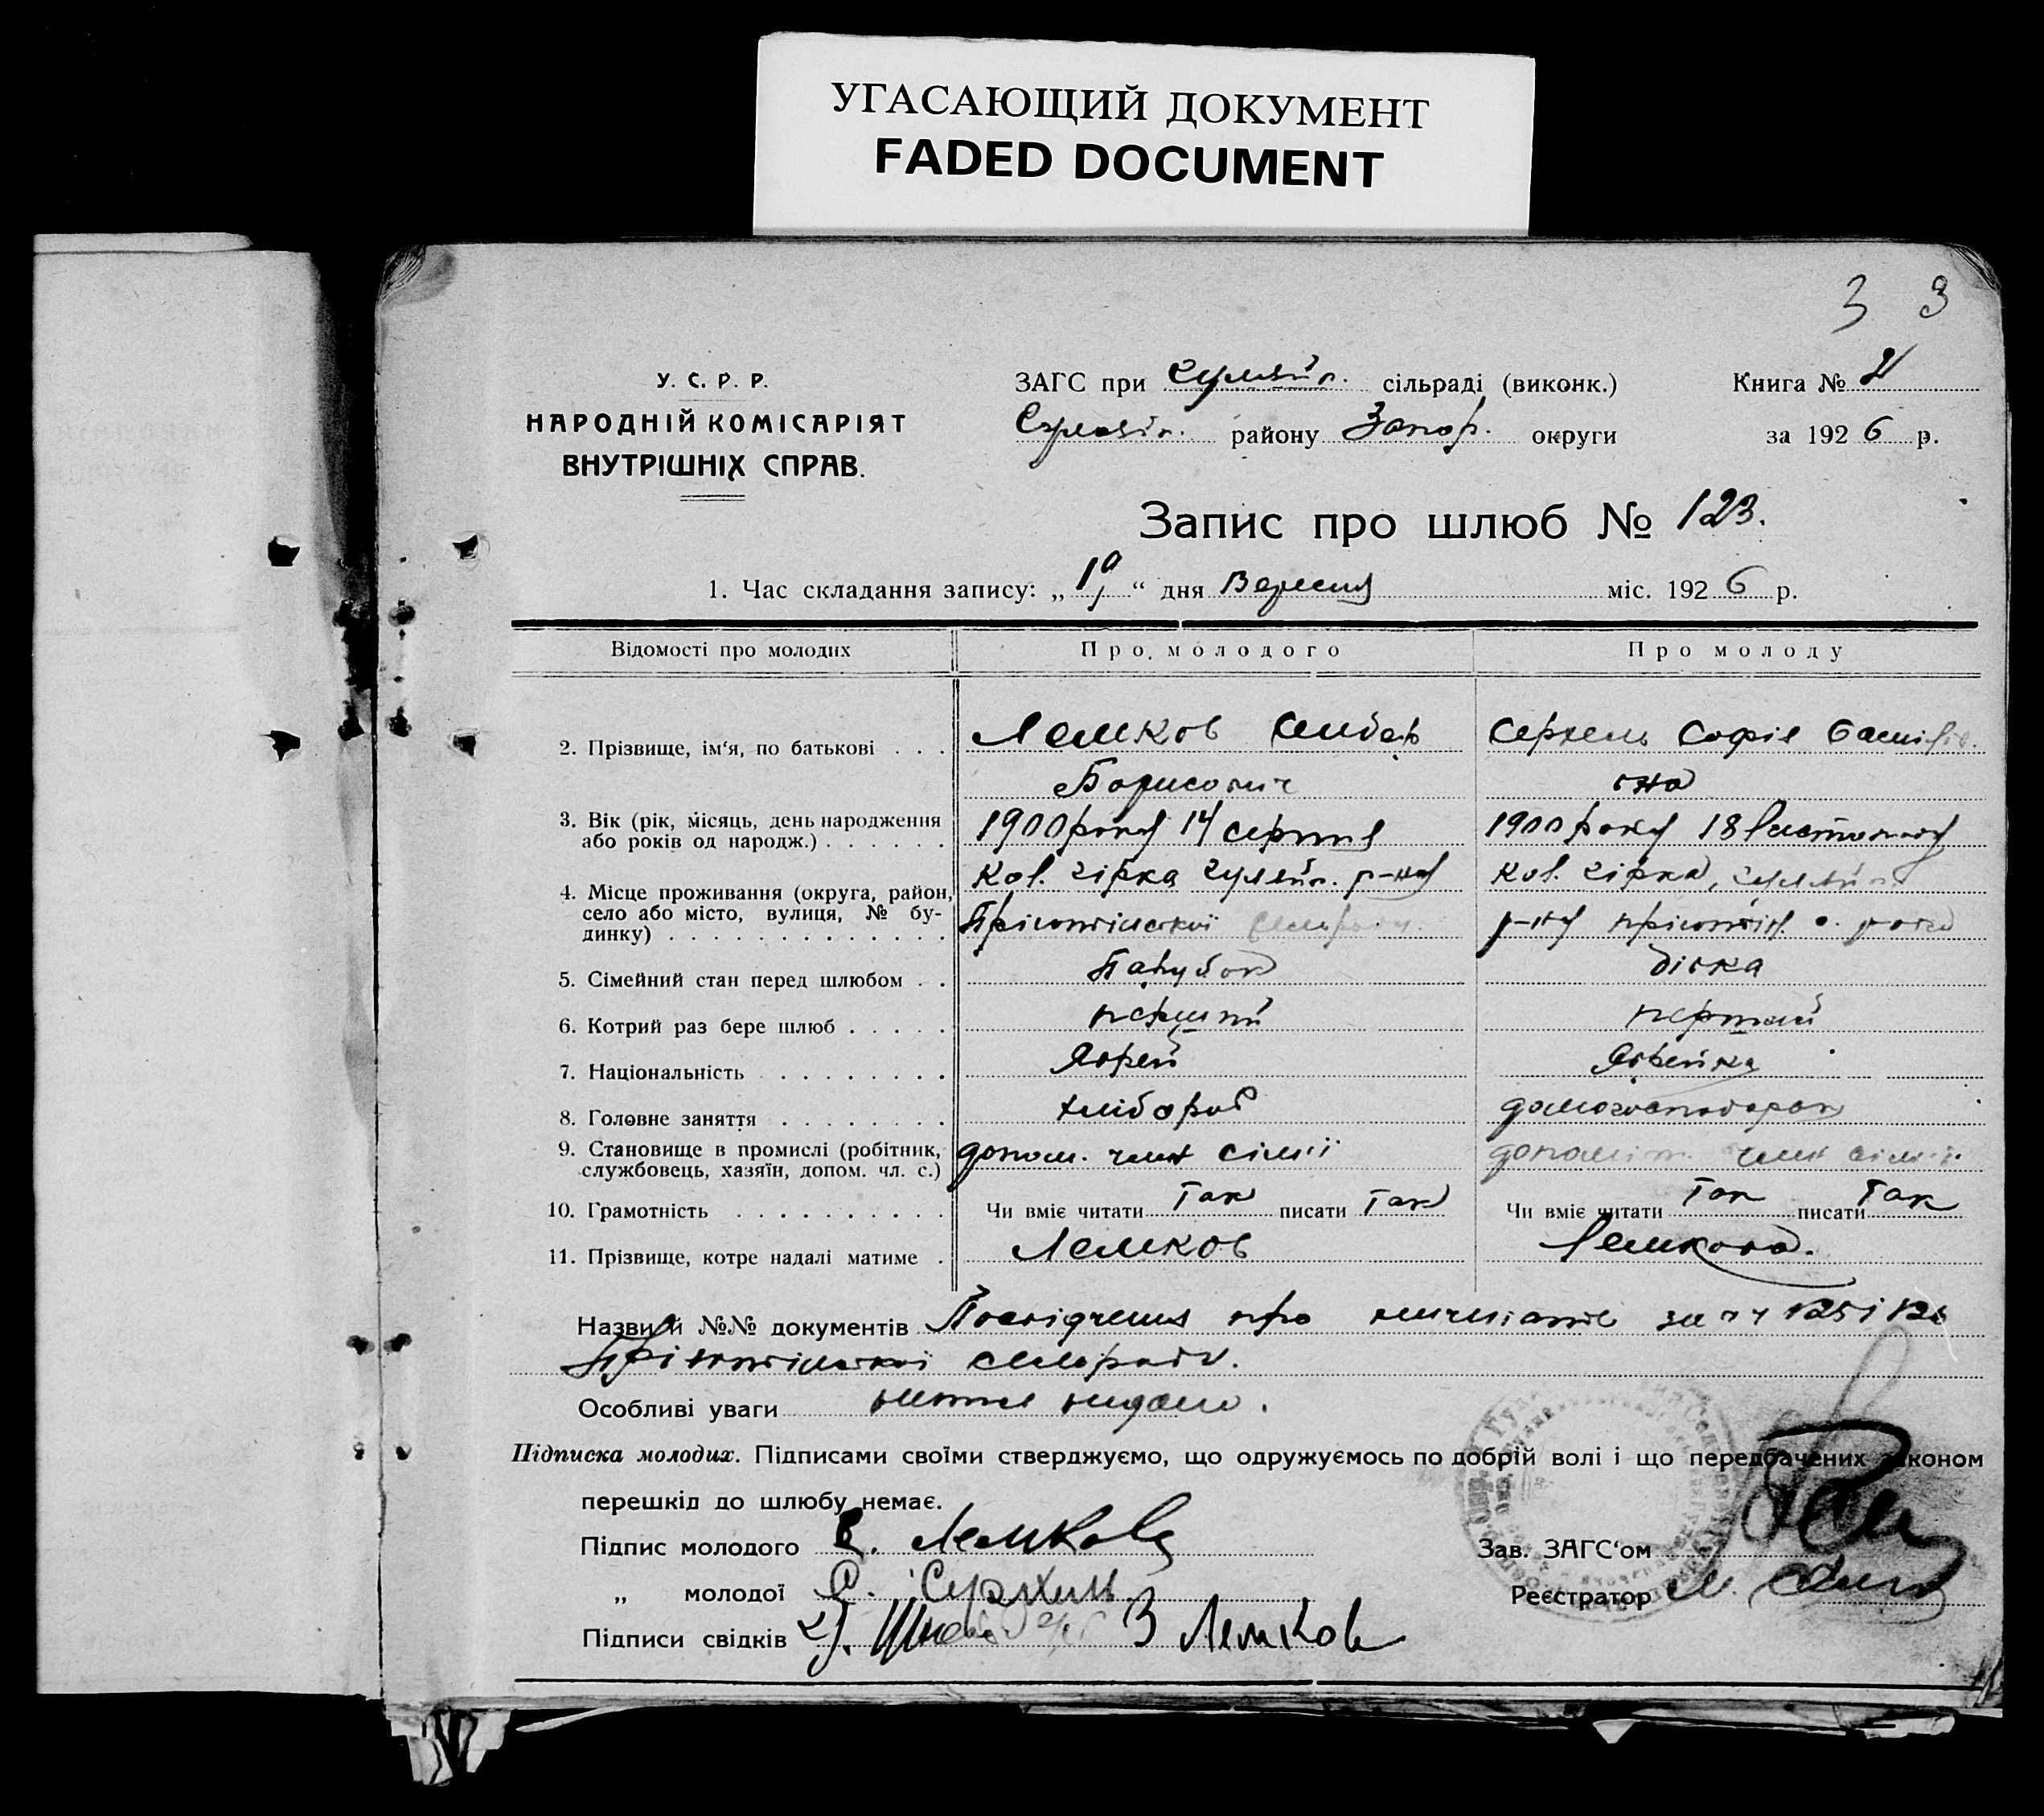 УГАСАЮЩИЙ ДОКУМЕНТ
FADED DOCUMENT
3 3
У. С. Р. Р.
НАРОДНІЙ КОМІСАРІЯТ
ВНУТРІШНІХ СПРАВ.
ЗАГС при Гуляйп. сільраді (виконк.)
Гуляйп. району Запор. округи
Книга №
за 1926 р.
Запис про шлюб № 123.
1. Час складання запису: „ “ дня Вересня міс. 1926 р.
Відомості про молодих
Про молодого
Про молоду
2. Прізвище, ім‘я, по батькові . . .
Лемков
Борисович
Софія
вна
3. Вік (рік, місяць, день народження
або років од народж.) . . . . . .
1900 року 14 серпня
1900 року 18 листопаду
4. Місце проживання (округа, район,
село або місто, вулиця, № бу-
динку) . . . . . . . . . . . . .
кол. гірка гуляйп. р-ну
кол. гірка, гуляйп.
р-ну
5. Сімейний стан перед шлюбом . .
Парубок
дівка
6. Котрий раз бере шлюб . . . . .
перший
перший
7. Національність . . . . . . . . .
Яврей
Яврейка
8. Головне заняття . . . . . . . .
хлібороб
9. Становище в промислі (робітник,
службовець, хазяїн, допом. чл. с.)
допом. член сімії
член сімії
10. Грамотність . . . . . . . . . .
Чи вміє читати Так писати Так
Чи вміє читати Так писати Так
11. Прізвище, котре надалі матиме .
Лемков
Лемкова.
Назви й №№ документів Посвідчення про за №№ 125 і
сільради.
Особливі уваги
Підписка молодих. Підписами своїми стверджуємо, що одружуємось по добрій волі і що передбачених законом
перешкід до шлюбу немає.
Підпис молодого Лемков
„ молодої С.
Підписи свідків З Лемков
Зав. ЗАГС‘ом
Реєстратор